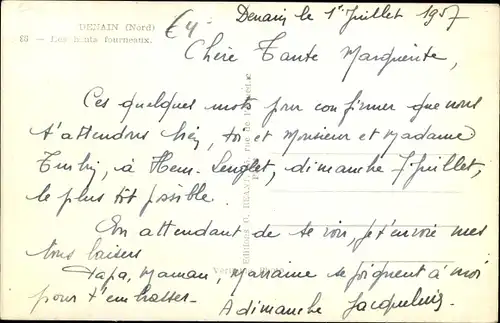 DENAIN (Nord)
86 — Les hauts fourneaux.
€4
Denain le 1er Juillet 1957
Chère Tante Marguerite,
Ces quelques mots pour confirmer que nous
t'attendons bien, toi et Monsieur et Madame
à Hem-Lenglet, dimanche 7 Juillet,
le plus tôt possible.
En attendant de te voir, je t'envoie mes
bons baisers
Papa, Maman, Marraine se joignent à moi
pour t'embrasser. A dimanche Jacqueline.
Editions
rue de